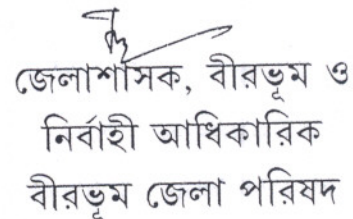 জেলাশাসক, বীরভূম ও
নির্বাহী আধিকারিক
বীরভূম জেলা পরিষদ